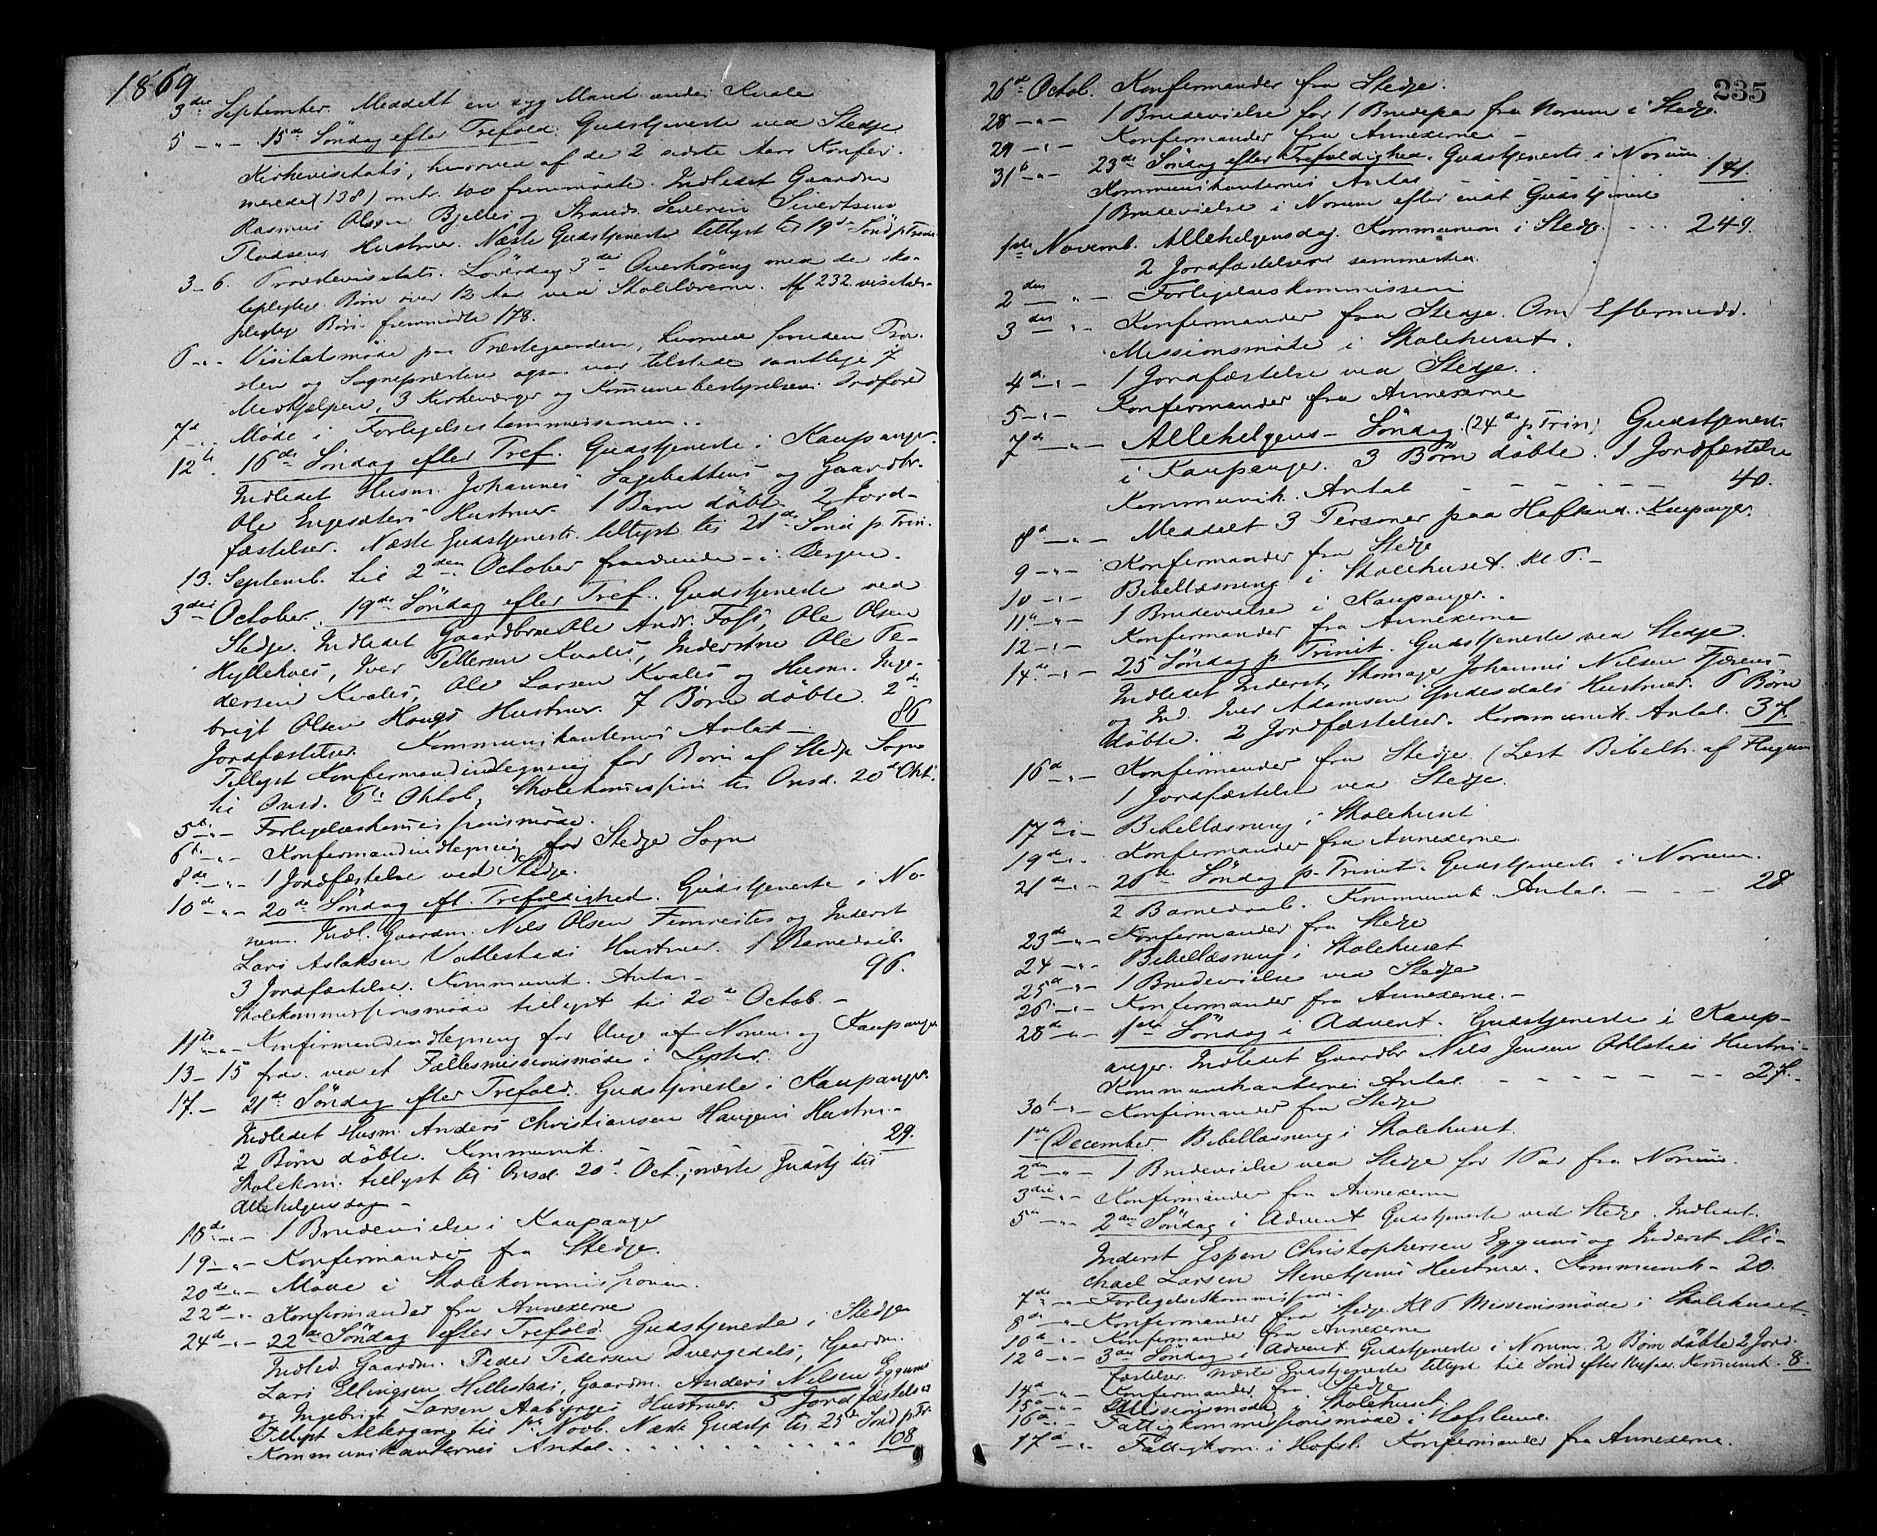 1869
3die September. Meddelt en syg Mand under Kvale
5 -"- 15de Søndag efter Trefold. Gudstjeneste ved Stedje
Kirkevisitats, hvorved af de 2 sidste Aars Konfir-
merede (138) omtr. 100 fremmødte. Indledet Gaardm
Rasmus Olsen Bjelles og Strands. Severin Sivertsens
Hustruer. Næste Gudstjeneste tillyst til 19de Sønd p. Trin
3-6. Provstevisitats. Løverdag 3die Overhøring med de sko-
lepligtige Børn over 12 Aar ved Skolelærerne. Af 232 visitats-
pligtige Børn fremmødte 178.
6 -"- Visitatsmøde paa Præstegaarden, hvorved foruden Prov-
sten og Sognepræsten ogsaa var tilstede samtlige 7
Medhjælpere, 3 Kirkeværger og Kommunebestyrelsens Ordfører
7de -"- Møde i Forligelseskommissionen.
12te 16de Søndag efter Tref. Gudstjeneste i Kaupanger.
Indledet Husm. Johannes Sagebakkens og Gaardbr.
Ole Engesæters Hustruer. 1 Barn døbt. 2 Jord-
fæstelser. Næste Gudstjeneste tillyst til 21de Sønd p. Trin.
13. Septemb. til 2den October fraværende i Bergen.
3die October. 19de Søndag efter Tref. Gudstjeneste ved
Stedje. Indledet Gaardbrne Ole Andr. Foss, Ole Olsen
Hyllekves, Iver Pettersen Kvales, Inderstne Ole Pe-
dersen Kvales, Ole Larsen Kvales og Husm. Inge-
brigt Olsen Haugs Hustruer. 7 Børn døbte. 2de
Jordfæstelser. Kommunikanternes Antal - 86
Tillyst Konfirmandindtegning for Børn af Stedje Sogn
til Onsd. 6te Oktob, Skolekomission til Onsd. 20de Okt.
5te -"- Forligelseskommissionsmøde.
6te -"- Konfirmandindtegning for Stedje Sogn
8de -"- 1 Jordfæstelse ved Stedje.
10de -"- 20de Søndag eft. Trefoldighed. Gudstjeneste i No-
rum. Indl. Gaardm. Nils Olsen Fimreites og Inderst
Lars Aslaksen Vallestads Hustruer. 1 Barnedaab.
3 Jordfæstelser. Kommunik. Antal - 96.
Skolekommissionsmøde tillyst til 20de Octob. -
11te -"- Konfirmandindtegning for Unge af Norum og Kaupanger
13-15 frav. ved et Fællesmissionsmøde i Lyster.
17. - 21de Søndag efter Trefold. Gudstjeneste i Kaupanger.
Indledet Husm. Anders Christiansen Haugens Hustru.
2 Børn døbte. Kommunik. 29.
Skolekom. tillyst til Onsd. 20de Oct., næste Gudstj til
Allehelgensdag -
18de -"- 1 Brudevielse i Kaupanger
19 -"- Konfirmander fra Stedje.
20de -"- Møde i Skolekommissionen.
22de -"- Konfirmander fra Annexerne
24de -"- 22de Søndag efter Trefold. Gudstjeneste i Stedje
Indled. Gaardm. Peder Pedersen Dvergedals, Gaardm.
Lars Ellingsen Hillestads, Gaardm. Anders Nilsen Eggums
og Ingebrigt Larsen Aabergs Hustruer. 5 Jordfæstelser
Tillyst Altergang til 1ste Novb. Næste Gudstj til 25de Sønd p. Tr
Kommunikanternes Antal . . . . . . . . 108
235
26de Octob. Konfirmander fra Stedje.
28 -"- 1 Brudevielse for 1 Brudepar fra Norum i Stedje.
29 -"- Konfirmander fra Annexerne -
31te -"- 23de Søndag efter Trefoldighed. Gudstjeneste i Norum
Kommunikanternes Antal - 141.
1 Brudevielse i Norum efter endt Gudstjeneste
1ste Novemb. Allehelgensdag. Kommunion i Stedje. . . . 249.
2 Jordfæstelser sammesteds
2den -"- Forligelseskommission
3die -"- Konfirmander fra Stedje. Om Eftermidd.
Missionsmøde i Skolehuset.
4de -"- 1 Jordfæstelse ved Stedje.
5 -"- Konfirmander fra Annexerne
7de -"- Allehelgens-Søndag (24de p Trin) Gudstjeneste
i Kaupanger. 3 Børn døbte. 1 Jordfæstelse
Kommunik. Antal - - - - - - 40.
8de -"- Meddelt 3 Personer paa Hafland. Kaupanger.
9 -"- Konfirmander fra Stedje
10 -"- Bibellæsning i Skolehuset Kl 6. -
11te -"- 1 Brudevielse i Kaupanger.
12 -"- Konfirmander fra Annexerne
14de -"- 25 Søndag p. Trinit. Gudstjeneste ved Stedje.
Indledet Inderst, Skomager Johannes Nilsen Fjærens
og Ind. Iver Adamsen Gudesdals Hustruer. 6 Børn
døbte. 2 Jordfæstelser. Kommunik. Antal. 37.
16de -"- Konfirmander fra Stedje. (Læst Bibelh. af Flugum
1 Jordfæstelse ved Stedje.
17de -"- Bibellæsning i Skolehuset
19de -"- Konfirmander fra Annexerne
21de -"- 26de Søndag p. Trinit. Gudstjeneste i Norum.
2 Barnedaab. Kommunik. Antal. - - - 28
23de -"- Konfirmander fra Stedje
24 -"- Bibellæsning i Skolehuset
25de -"- 1 Brudevielse ved Stedje
26. -"- Konfirmander fra Annexerne. -
28de -"- 1ste Søndag i Advent. Gudstjeneste i Kaup-
anger. Indledet Gaardbr Nils Jensen Ohlstads Hustru.
Kommunikanternes Antal. - - - - - - 27. -
30te -"- Konfirmander fra Stedje
1ste December. Bibellæsning i Skolehuset.
2den -"- 1 Brudevielse ved Stedje for 1 Par fra Norum.
3die -"- Konfirmander fra Annexerne
5te -"- 2den Søndag i Advent Gudstjeneste ved Stedje. Indledet.
Inderst Espen Christophersen Eggums og Inderst Mi-
chael Larsen Stenehjems Hustruer. Kommunik - 20.
7de -"- Forligelseskommission.
8de -"- Konfirmander fra Stedje. Kl 6 Missionsmøde i Skolehuset
10de -"- Konfirmander fra Annexerne
12te -"- 3die Søndag i Advent Gudstjeneste i Norum. 2 Børn døbte 2 Jord-
fæstelser. Næste Gudstjeneste tillyst til Sønd efter Nytaar. Kommunik. 8.
14de -"- Konfirmander fra Stedje
15de -"- Missionsmøde i Skolehuset.
16de -"- Fattigkommissionsmøde i Hofslund.
17de -"- Fattigkom. i Hofsl. Konfirmander fra Annexerne.